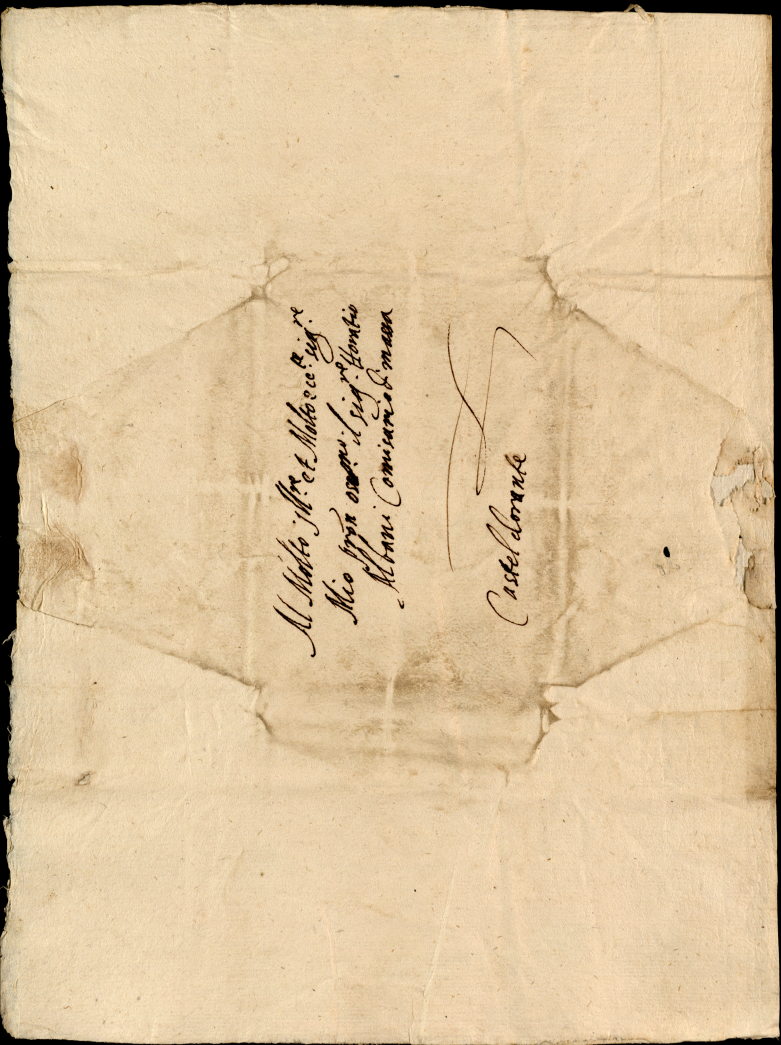 Al Molto Ill.re et Molto ecc.te sig.re
Mio pron oss.mo il sig.re Horatio
Albani Comisario d massa
Castel dorante